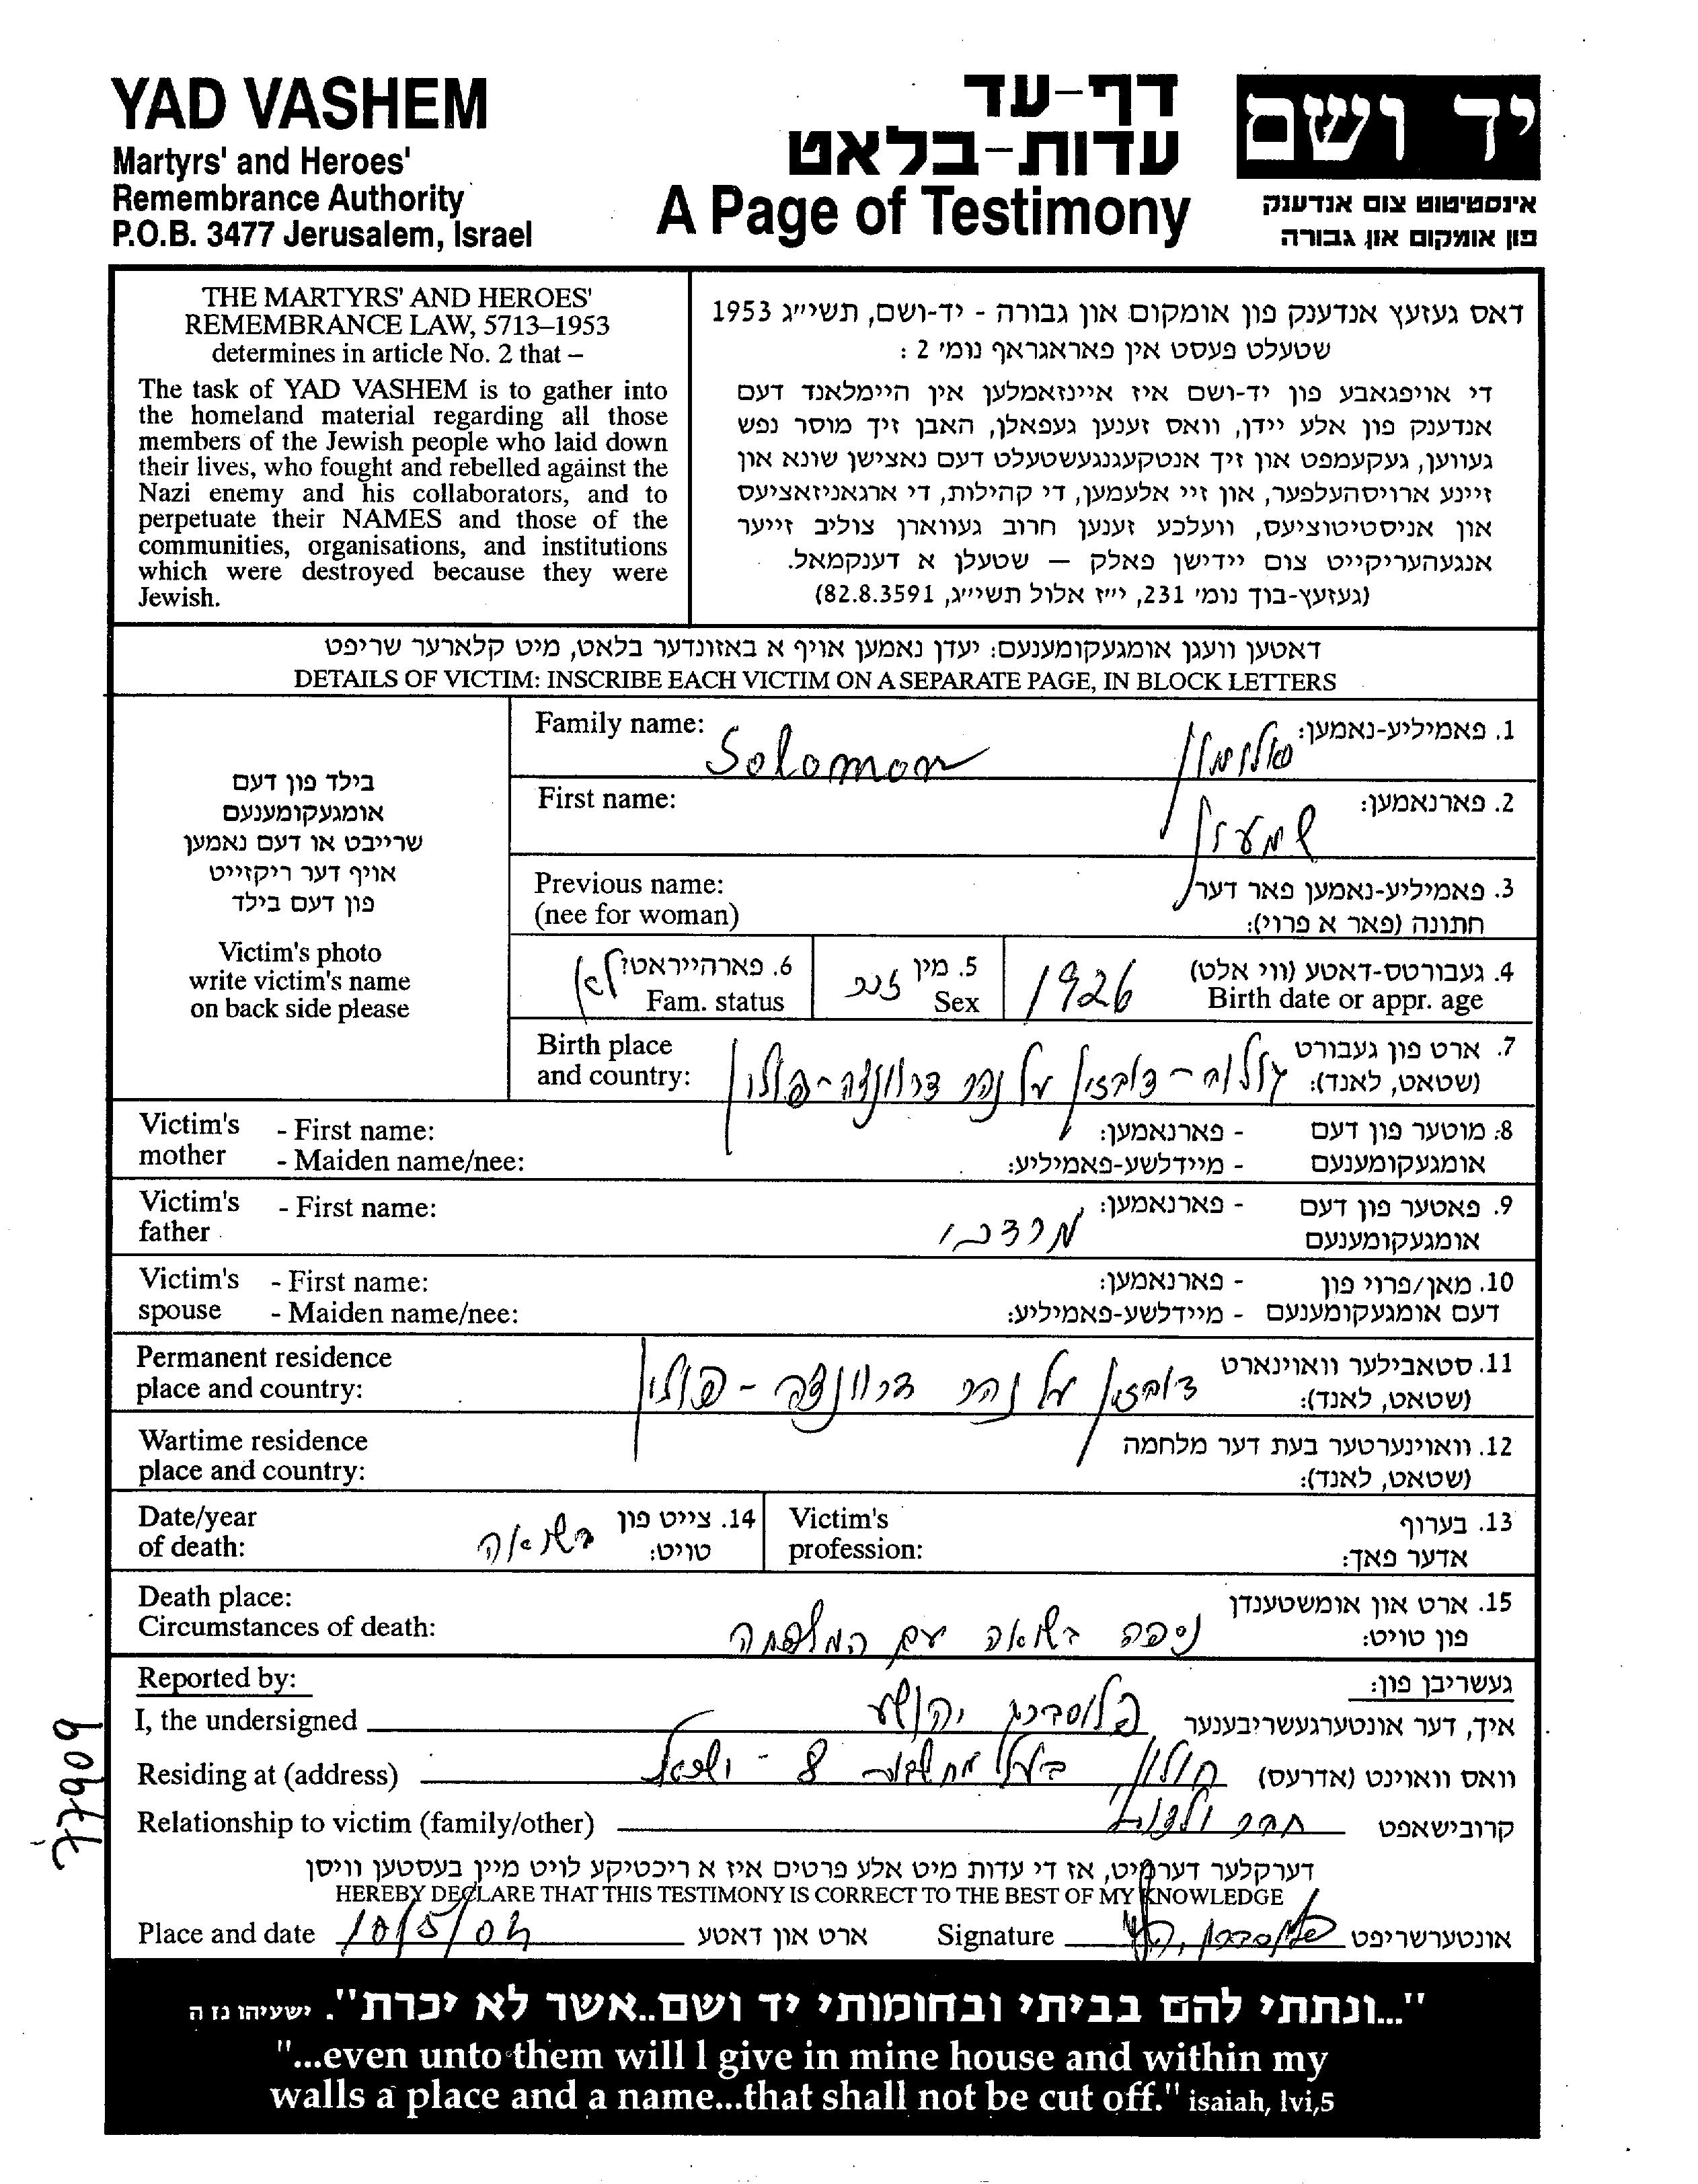 YAD VASHEM
Martyrs' and Heroes'
Remembrance Authority
P.O.B. 3477 Jerusalem, Israel
דף-עד
עדות-בלאט
A Page of Testimony
יד ושם
אינסטיטוט צום אנדענק
פון אומקום און גבורה
THE MARTYRS' AND HEROES'
REMEMBRANCE LAW, 5713–1953
determines in article No. 2 that –
The task of YAD VASHEM is to gather into
the homeland material regarding all those
members of the Jewish people who laid down
their lives, who fought and rebelled against the
Nazi enemy and his collaborators, and to
perpetuate their NAMES and those of the
communities, organisations, and institutions
which were destroyed because they were
Jewish.
דאס געזעץ אנדענק פון אומקום און גבורה - יד-ושם, תשי״ג 1953
שטעלט פעסט אין פאראגראף נומ׳ 2 :
די אויפגאבע פון יד-ושם איז איינזאמלען אין היימלאנד דעם
אנדענק פון אלע יידן, וואס זענען געפאלן, האבן זיך מוסר נפש
געווען, געקעמפט און זיך אנטקעגנגעשטעלט דעם נאצישן שונא און
זיינע ארויסהעלפער, און זיי אלעמען, די קהילות, די ארגאניזאציעס
און אניסטיטוציעס, וועלכע זענען חרוב געווארן צוליב זייער
אנגעהעריקייט צום יידישן פאלק — שטעלן א דענקמאל.
(געזעץ-בוך נומ׳ 231, י״ז אלול תשי״ג, 82.8.3591)
דאטען וועגן אומגעקומענעם: יעדן נאמען אויף א באזונדער בלאט, מיט קלארער שריפט
DETAILS OF VICTIM: INSCRIBE EACH VICTIM ON A SEPARATE PAGE, IN BLOCK LETTERS
בילד פון דעם
אומגעקומענעם
שרייבט או דעם נאמען
אויף דער ריקזייט
פון דעם בילד
Victim's photo
write victim's name
on back side please
Family name: Solomon סולומון 1. פאמיליע-נאמען:
First name: שמעון 2. פארנאמען:
Previous name: 3. פאמיליע-נאמען פאר דער
(nee for woman) חתונה (פאר א פרוי):
6. פארהייראט? לא
Fam. status
5. מין זכר
Sex
4. געבורטס-דאטע (ווי אלט) 1926
Birth date or appr. age
Birth place 7. ארט פון געבורט
and country: (שטאט, לאנד): דוברזין על נהר דרוונצה - פולין
Victim's - First name: - פארנאמען: 8. מוטער פון דעם
mother - Maiden name/nee: - מיידלשע-פאמיליע: אומגעקומענעם
Victim's - First name: - פארנאמען: 9. פאטער פון דעם
father מרדכי אומגעקומענעם
Victim's - First name: - פארנאמען: 10. מאן/פרוי פון
spouse - Maiden name/nee: - מיידלשע-פאמיליע: דעם אומגעקומענעם
Permanent residence 11. סטאבילער וואוינארט
place and country: דוברזין על נהר דרוונצה - פולין (שטאט, לאנד):
Wartime residence 12. וואוינערטער בעת דער מלחמה
place and country: (שטאט, לאנד):
Date/year 14. צייט פון
of death: בשואה טויט:
Victim's 13. בערוף
profession: אדער פאך:
Death place: 15. ארט און אומשטענדן
Circumstances of death: נספה בשואה עם המשפחה פון טויט:
Reported by: געשריבן פון:
I, the undersigned פלוסברג יהושע איך, דער אונטערגעשריבענער
Residing at (address) חולון בעל מחשבות 8 - ישראל וואס וואוינט (אדרעס)
Relationship to victim (family/other) חבר ילדות קרובישאפט
דערקלער דערמיט, אז די עדות מיט אלע פרטים איז א ריכטיקע לויט מיין בעסטען וויסן
HEREBY DECLARE THAT THIS TESTIMONY IS CORRECT TO THE BEST OF MY KNOWLEDGE
Place and date 10/5/04 ארט און דאטע Signature אונטערשריפט
"...ונתתי להם בביתי ובחומותי יד ושם..אשר לא יכרת". ישעיהו נז ה
"...even unto them will I give in mine house and within my
walls a place and a name...that shall not be cut off." isaiah, lvi,5